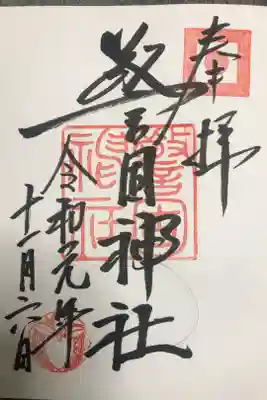 奉拝
警固神社
令和元年
十一月六日